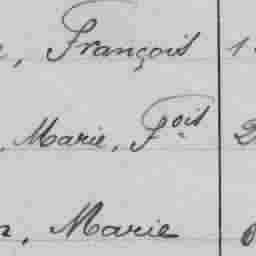 , François 1
, Marie, Fois 2
, Marie